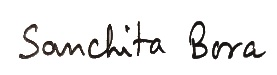 Sanchita Bora